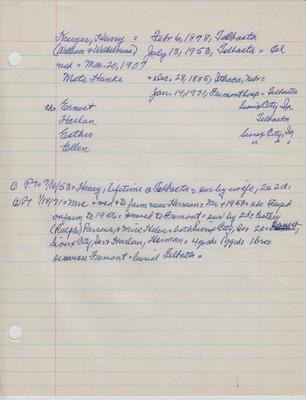 Krueger, Henry = Febr 6, 1878, Talbasta
(William & Wilhelmina) July 13, 1953, Talbasta =
med = Mar. 20, 1907
Meta Hanke = Dec. 28, 1885, Ithaca, Nebr =
Jan. 14, 1971, Fremont hosp =
ch: Ernest Sioux City, Ia
Harlan
Esther Sioux City, Ia
Ellen " " "
@ PT = 7/16/53 = Henry, lifetime @ = sur by wife, 2s 2d.
@ PT 1/18/71 = Mrs = med + to farm near Herman = Mr + 1953 = she stayed
on farm to 1960 = moved to Fremont = sur by 2d =
(Ralph) Parsons, + Miss Helen = both Sioux City, Ia = 2s =
Sioux City, Ia + Harlan, Herman = 4 gch 1 ggch 1 bro =
services Fremont = burial